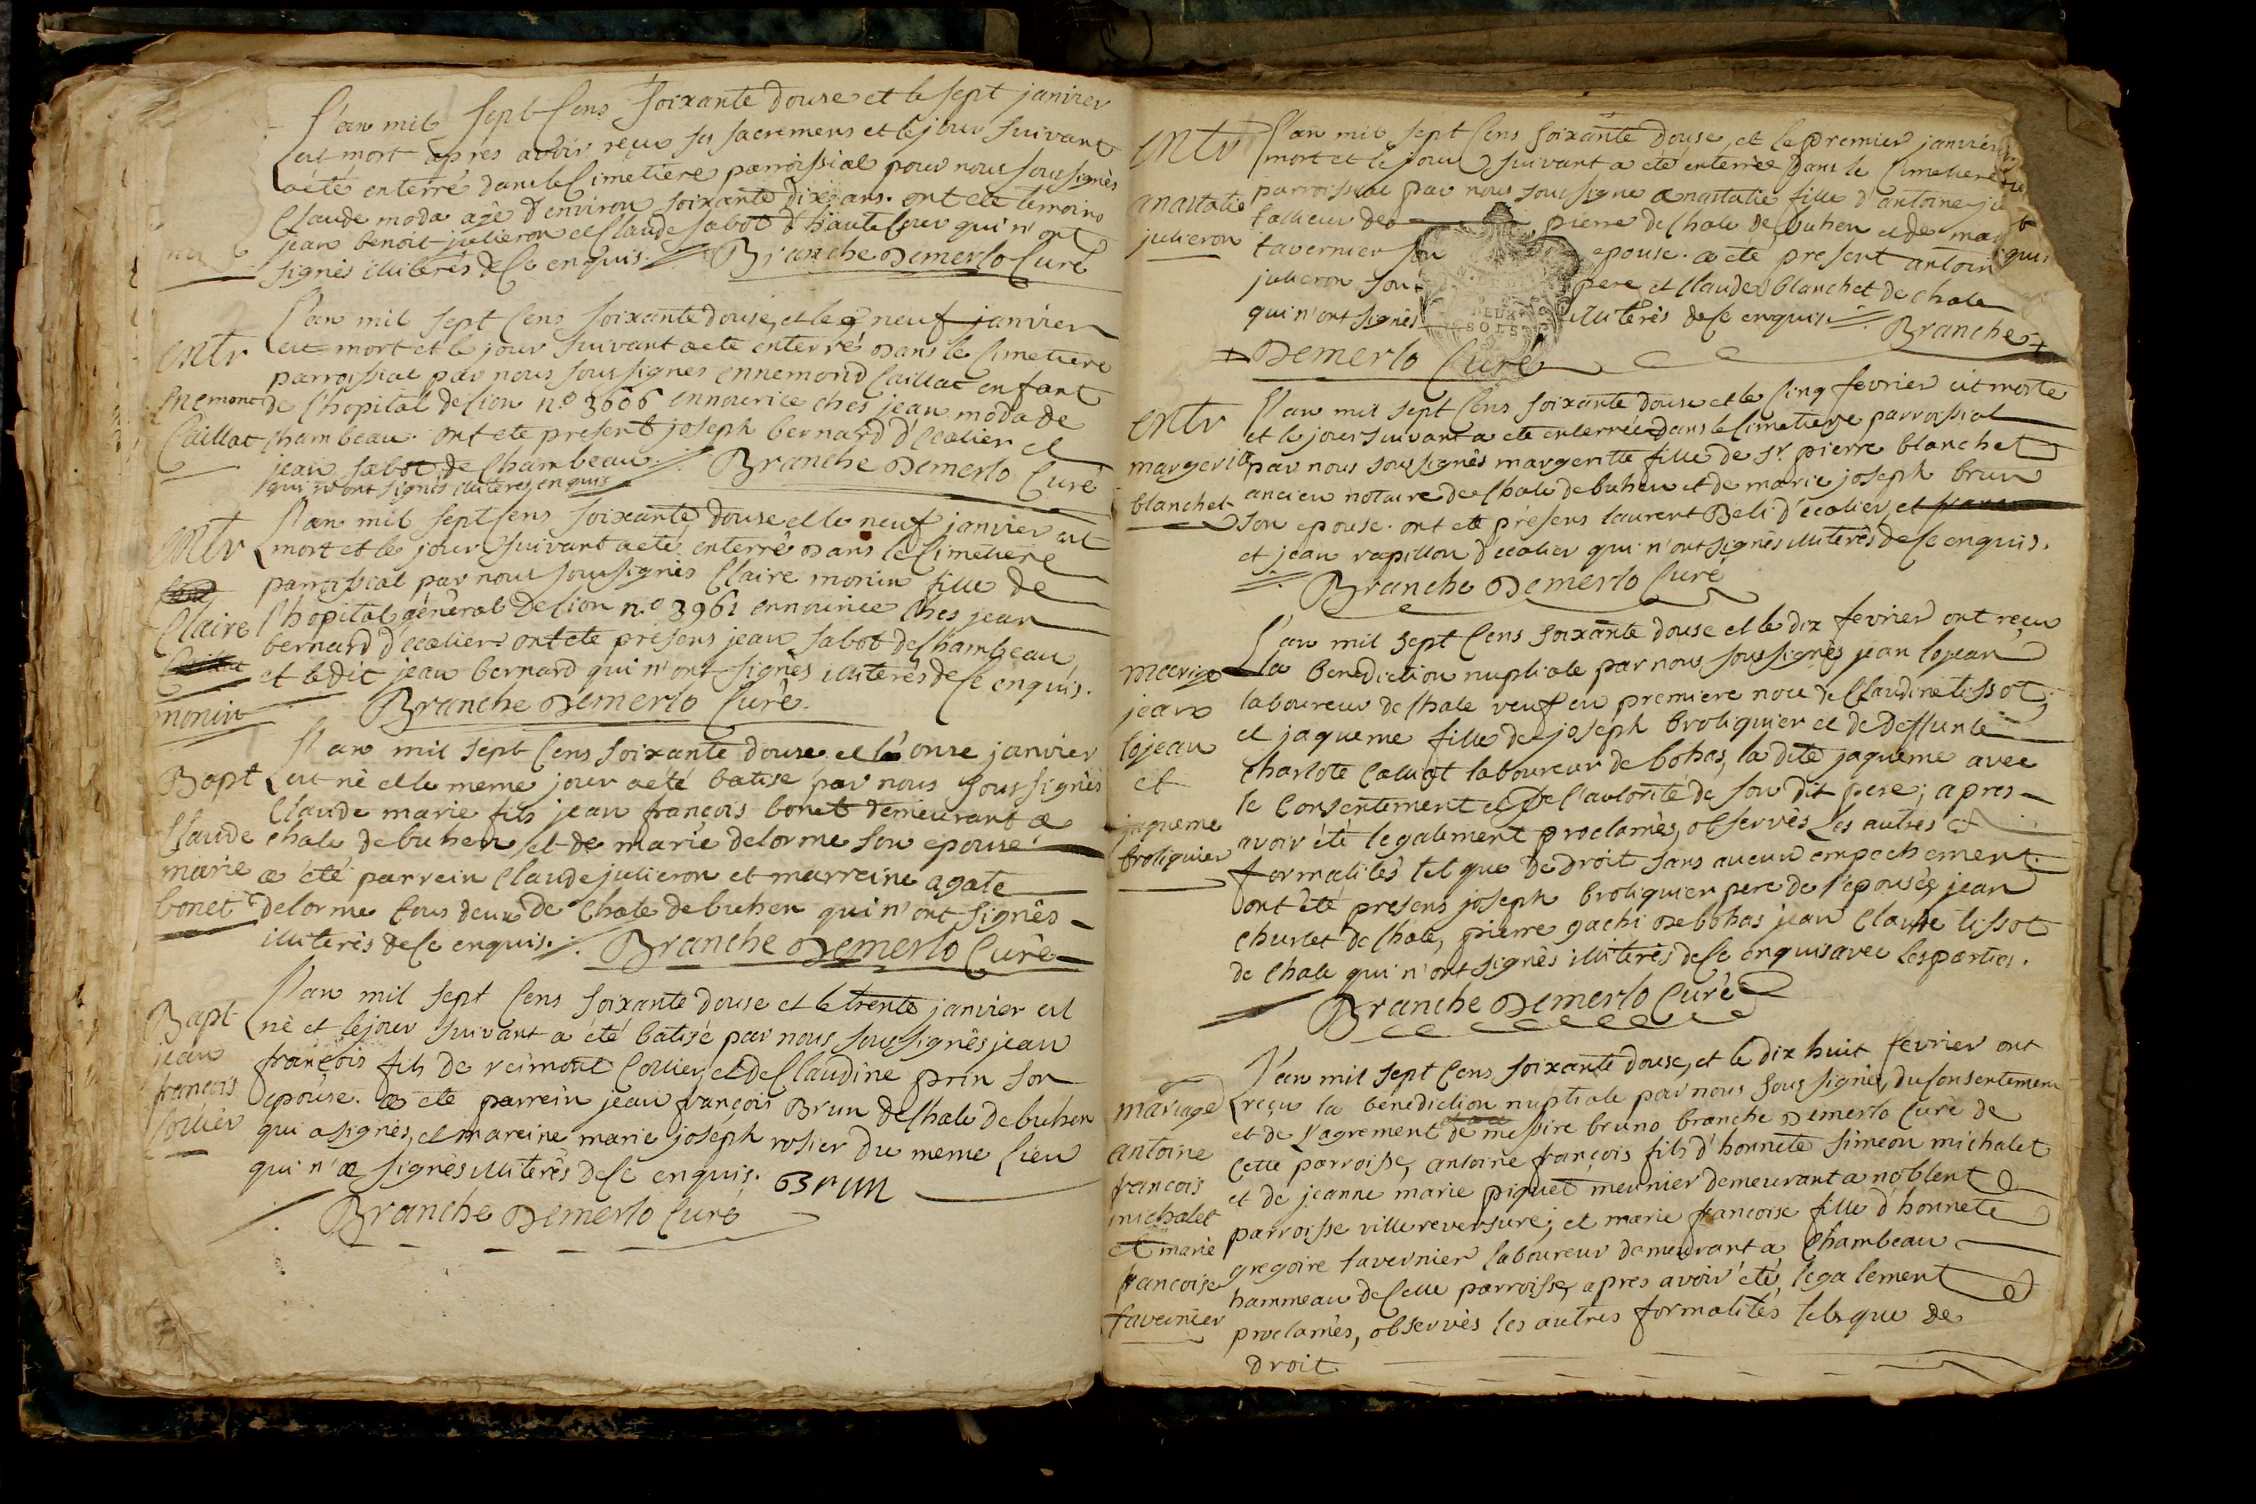 L'an mil sept Cens soixante douse et le sept janvier
est mort apres avoir reçu ses sacremens et le jour suivant
a été enterré dans le Cimetiere parroissial pour nous sous signés
Claude moda agé d'environ soixante dix ans. ont eté temoins
jean benoit julieron et Claude sabot d'haute Cour qui n'ont
signés illiterés de Ce enquis. Branche Demerlo Curé
L'an mil sept Cens soixante douse, et le 9 neuf janvier
entr est mort et le jour suivant a eté enterré Dans le Cimetiere
parroissial par nous sous signés ennemond Caillat enfant
Enemont de l'hopital de Lion n.o 3606 en nourice ches jean moda de
Caillat Chambeau. ont eté present joseph bernard d'Ecolier et
jean sabot de Chambeau. Branche Demerlo Curé
qui n'ont signés illiterés enquis
L'an mil sept sens soixante douse et le neuf janvier est
entr mort et le jour suivant a eté enterré Dans le Cimetiere
parroissial par nous sous signés Claire monin fille de
Claire l'hopital géneral de Lion n.o 3961 en nourice Ches jean
bernard d'ecolier ont eté présens jean sabot de Chambeau
et le dit jean bernard qui n'ont signés illiterés de Ce enquis.
monin Branche Demerlo Curé.
L'an mil sept Cens soixante douse et le onse janvier
Bapt est né et le meme jour a eté batisé par nous sous signés
Claude marie fils jean françois bonet demeurant a
Claude chale de buhen et de marie delorme son epouse
marie a été parrein Claude julieron et marreine agate
bonet delorme tous deux de Chale de buhen qui n'ont signés
illiterés de Ce enquis. Branche Demerlo Curé
L'an mil sept Cens soixante douse et le trente janvier est
Bapt né et le jour suivant a été batisé par nous sous signés jean
jean
françois françois fils de reimont Collier, et de Claudine prin son
epouse. a eté parrein jean françois Brun de Chale de buhen
Collier qui a signés, et mareine marie joseph rosier du meme Lieu
qui n'a signés illiterés de Ce enquis. Brun
Branche Demerlo Curé
L'an mil sept Cens soixante douse, et le premier janvier
entr mort et le jour suivant a eté enterrée Dans le Cimetiere
parroissial par nous sous signe anastatie fille d'antoine
anastatie tallieur de pierre de Chale de buhen et de
julieron tavernier son epouse. a eté present antoin
julieron son pere et Claude Blanchet de Chale
qui n'ont signés illiterés de Ce enquis. Branche +
SOLS
+ Demerlo Curé
L'an mil sept Cens soixante douse et le Cinq fevrier est morte
entr et le jour suivant a eté enterrée dans le Cimetiere parroissial
margeritte par nous sous signés margeritte fille de sr. pierre blanchet
blanchet ancien notaire de Chale de buhen et de marie joseph brun
son epouse. ont eté présens laurent Beli d'écolier,
et jean rapillon d'écolier qui n'ont signés illiterés de Ce enquis.
Branche Demerlo Curé
L'an mil sept Cens soixante douse et le dix fevrier ont reçu
mariage La benediction nuptiale par nous sous signés jean lojean
jean laboureur de Chale veuf en premiere noce de Claudine tissot,
lojean et jaqueme fille de joseph broliquier et de deffunte
et charlote Calliat laboureur de bohas, la dite jaqueme avec
jaqueme le Consentement et de l'autorité de son dit pere; apres
broliquier avoir été legalement proclamés, observés les autres
formalités tel que de droit sans aucun empechement.
ont été presens joseph broliquier pere de l'epousée, jean
churlet de Chale, pierre gachi de bohas jean Claude tissot
de Chale qui n'ont signés illiterés de Ce enquis avec les parties.
Branche Demerlo Curé
L'an mil sept Cens soixante douse, et le dix huit fevrier ont
mariage reçu la benediction nuptiale par nous sous signés, du Consentement
et de l'agrement de messire bruno branche Demerlo Curé de
antoine Cette parroisse, antoine françois fils d'honnete simeon michalet
francois et de jeanne marie piquet meunier demeurant a noblent
michalet parroisse villereversure; et marie francoise fille d'honnete
et marie gregoire tavernier laboureur demeurant a Chambeau
francoise hammeau de Cette parroisse, apres avoir été legalement
tavernier proclamés, observés les autres formalités tels que de
droit